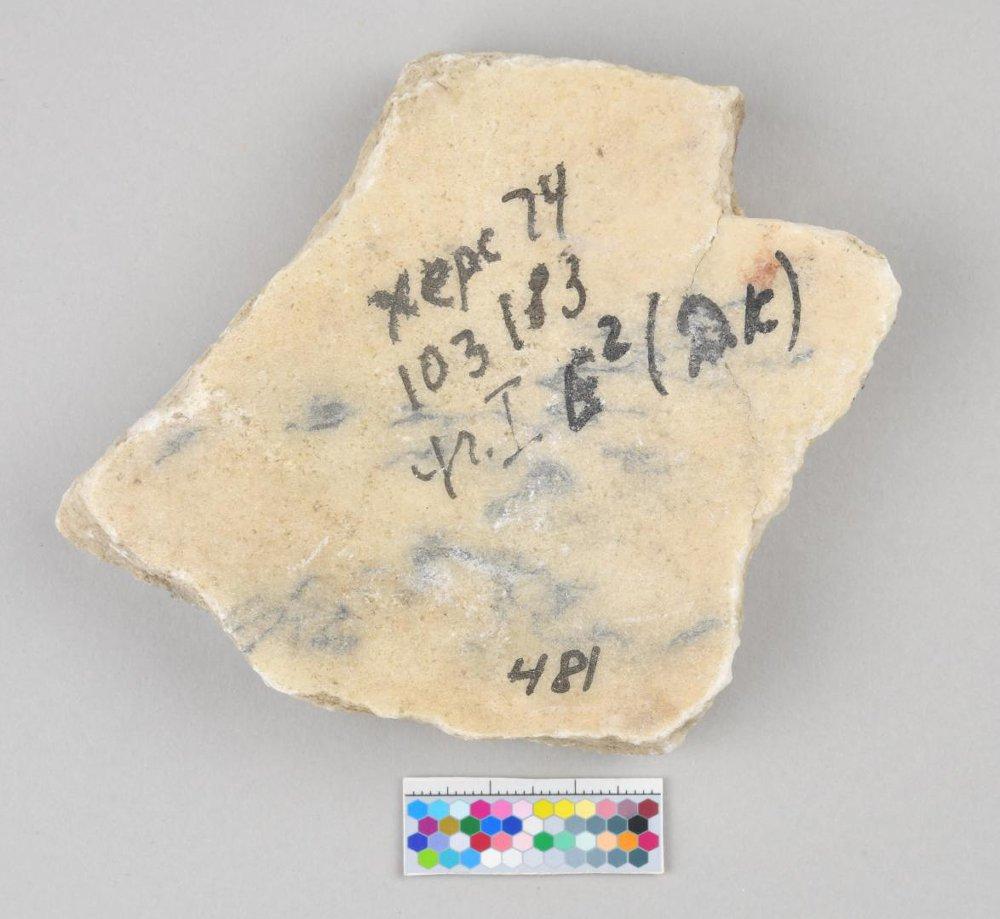 херс 74
103 183
уч. I Б² (ДК)
481